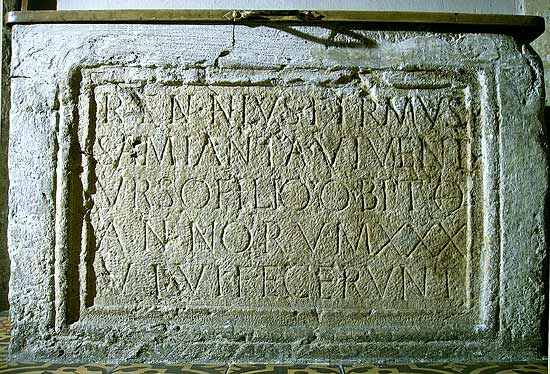 RENNIVS FIRMVS
AMIANTA VIVENT
VRSO FILIO OBITO
ANNORVM XXX
VIVI FECERVNT